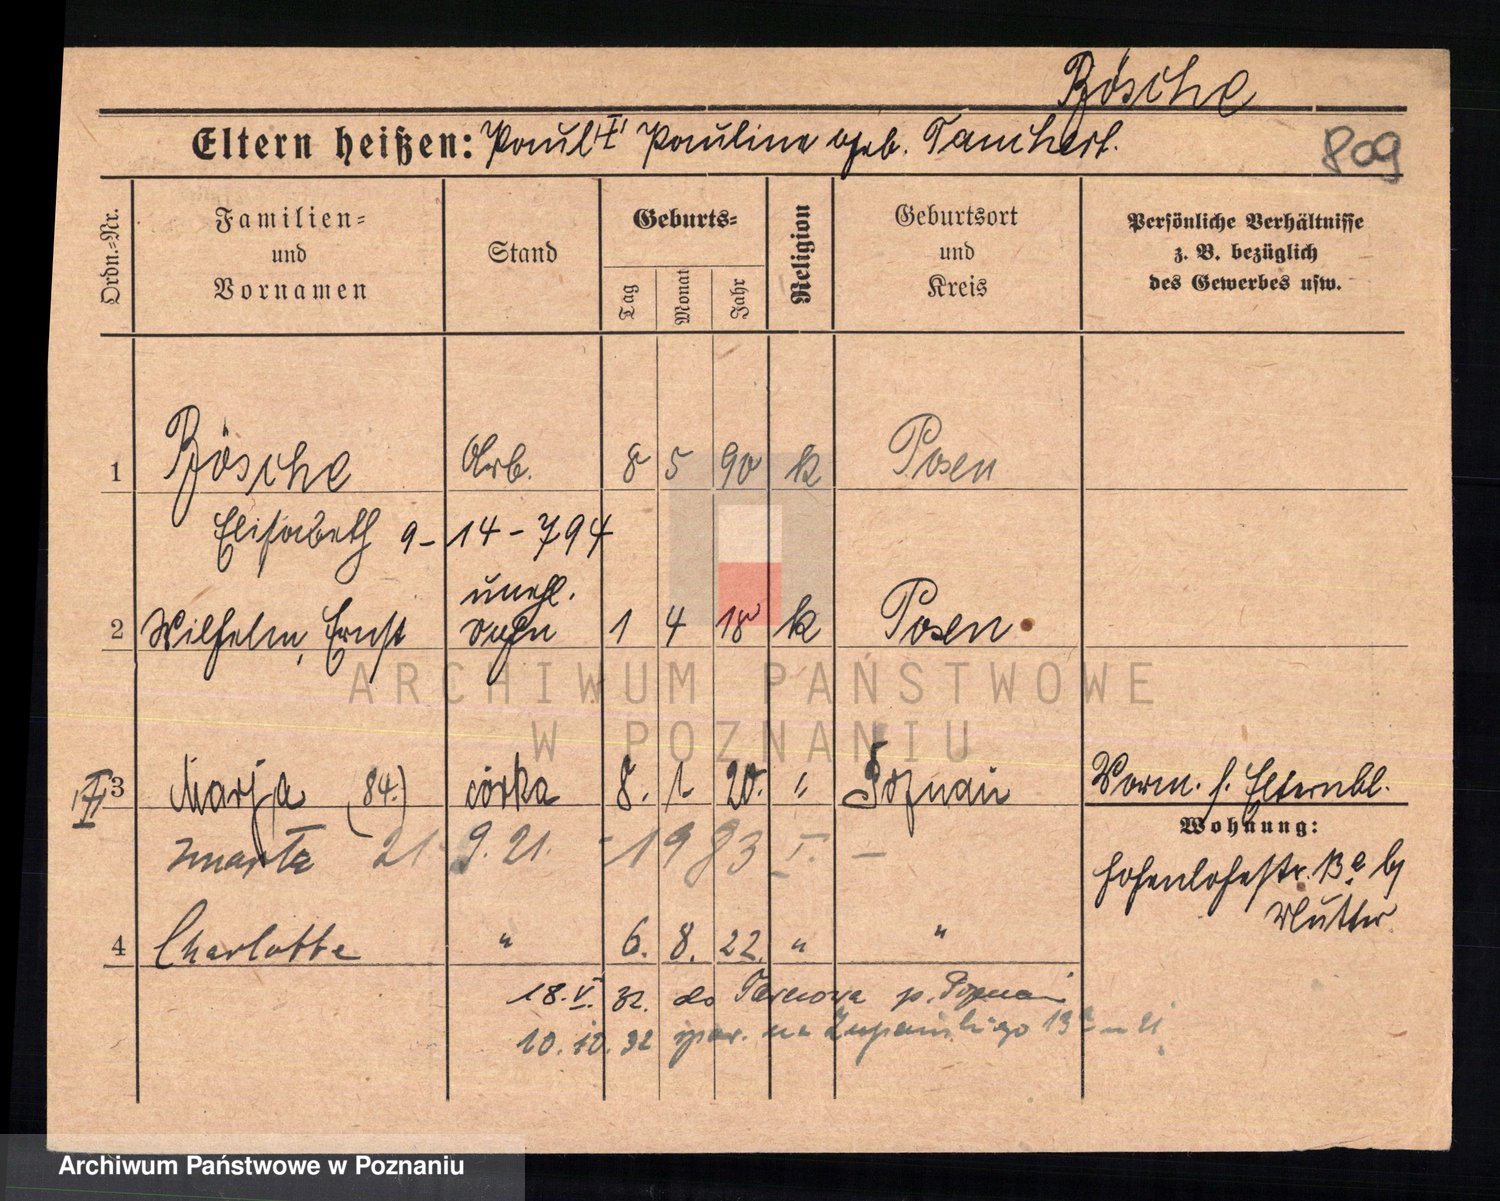 Bösche
Eltern heißen: Paul "I" Pauline geb. Tauchert.
809
Ordn.=Nr.
Familien=
und
Vornamen
Stand
Geburts=
Tag
Monat
Jahr
Religion
Geburtsort
und
Kreis
Persönliche Verhältnisse
z. B. bezüglich
des Gewerbes usw.
1 Bösche Arb. 8 5 90 k Posen
Elisabeth 9-14-794
unehl.
2 Wilhelm, Ernst Sohn 1 4 18 k Posen
ARCHIWUM PAŃSTWOWE
W POZNANIU
3 Marja (84.) córka 8. 1. 20. " Poznań
Vorm. s. Elternbl.
Wohnung:
marta 21. 9. 21. - 1983 I. -
Hohenlohestr. 13a b/
Mutter.
4 Charlotte " 6. 8. 22. " "
18. V. 32. do p. Poznań
10. 10. 32 na Żupańskiego 13a
Archiwum Państwowe w Poznaniu